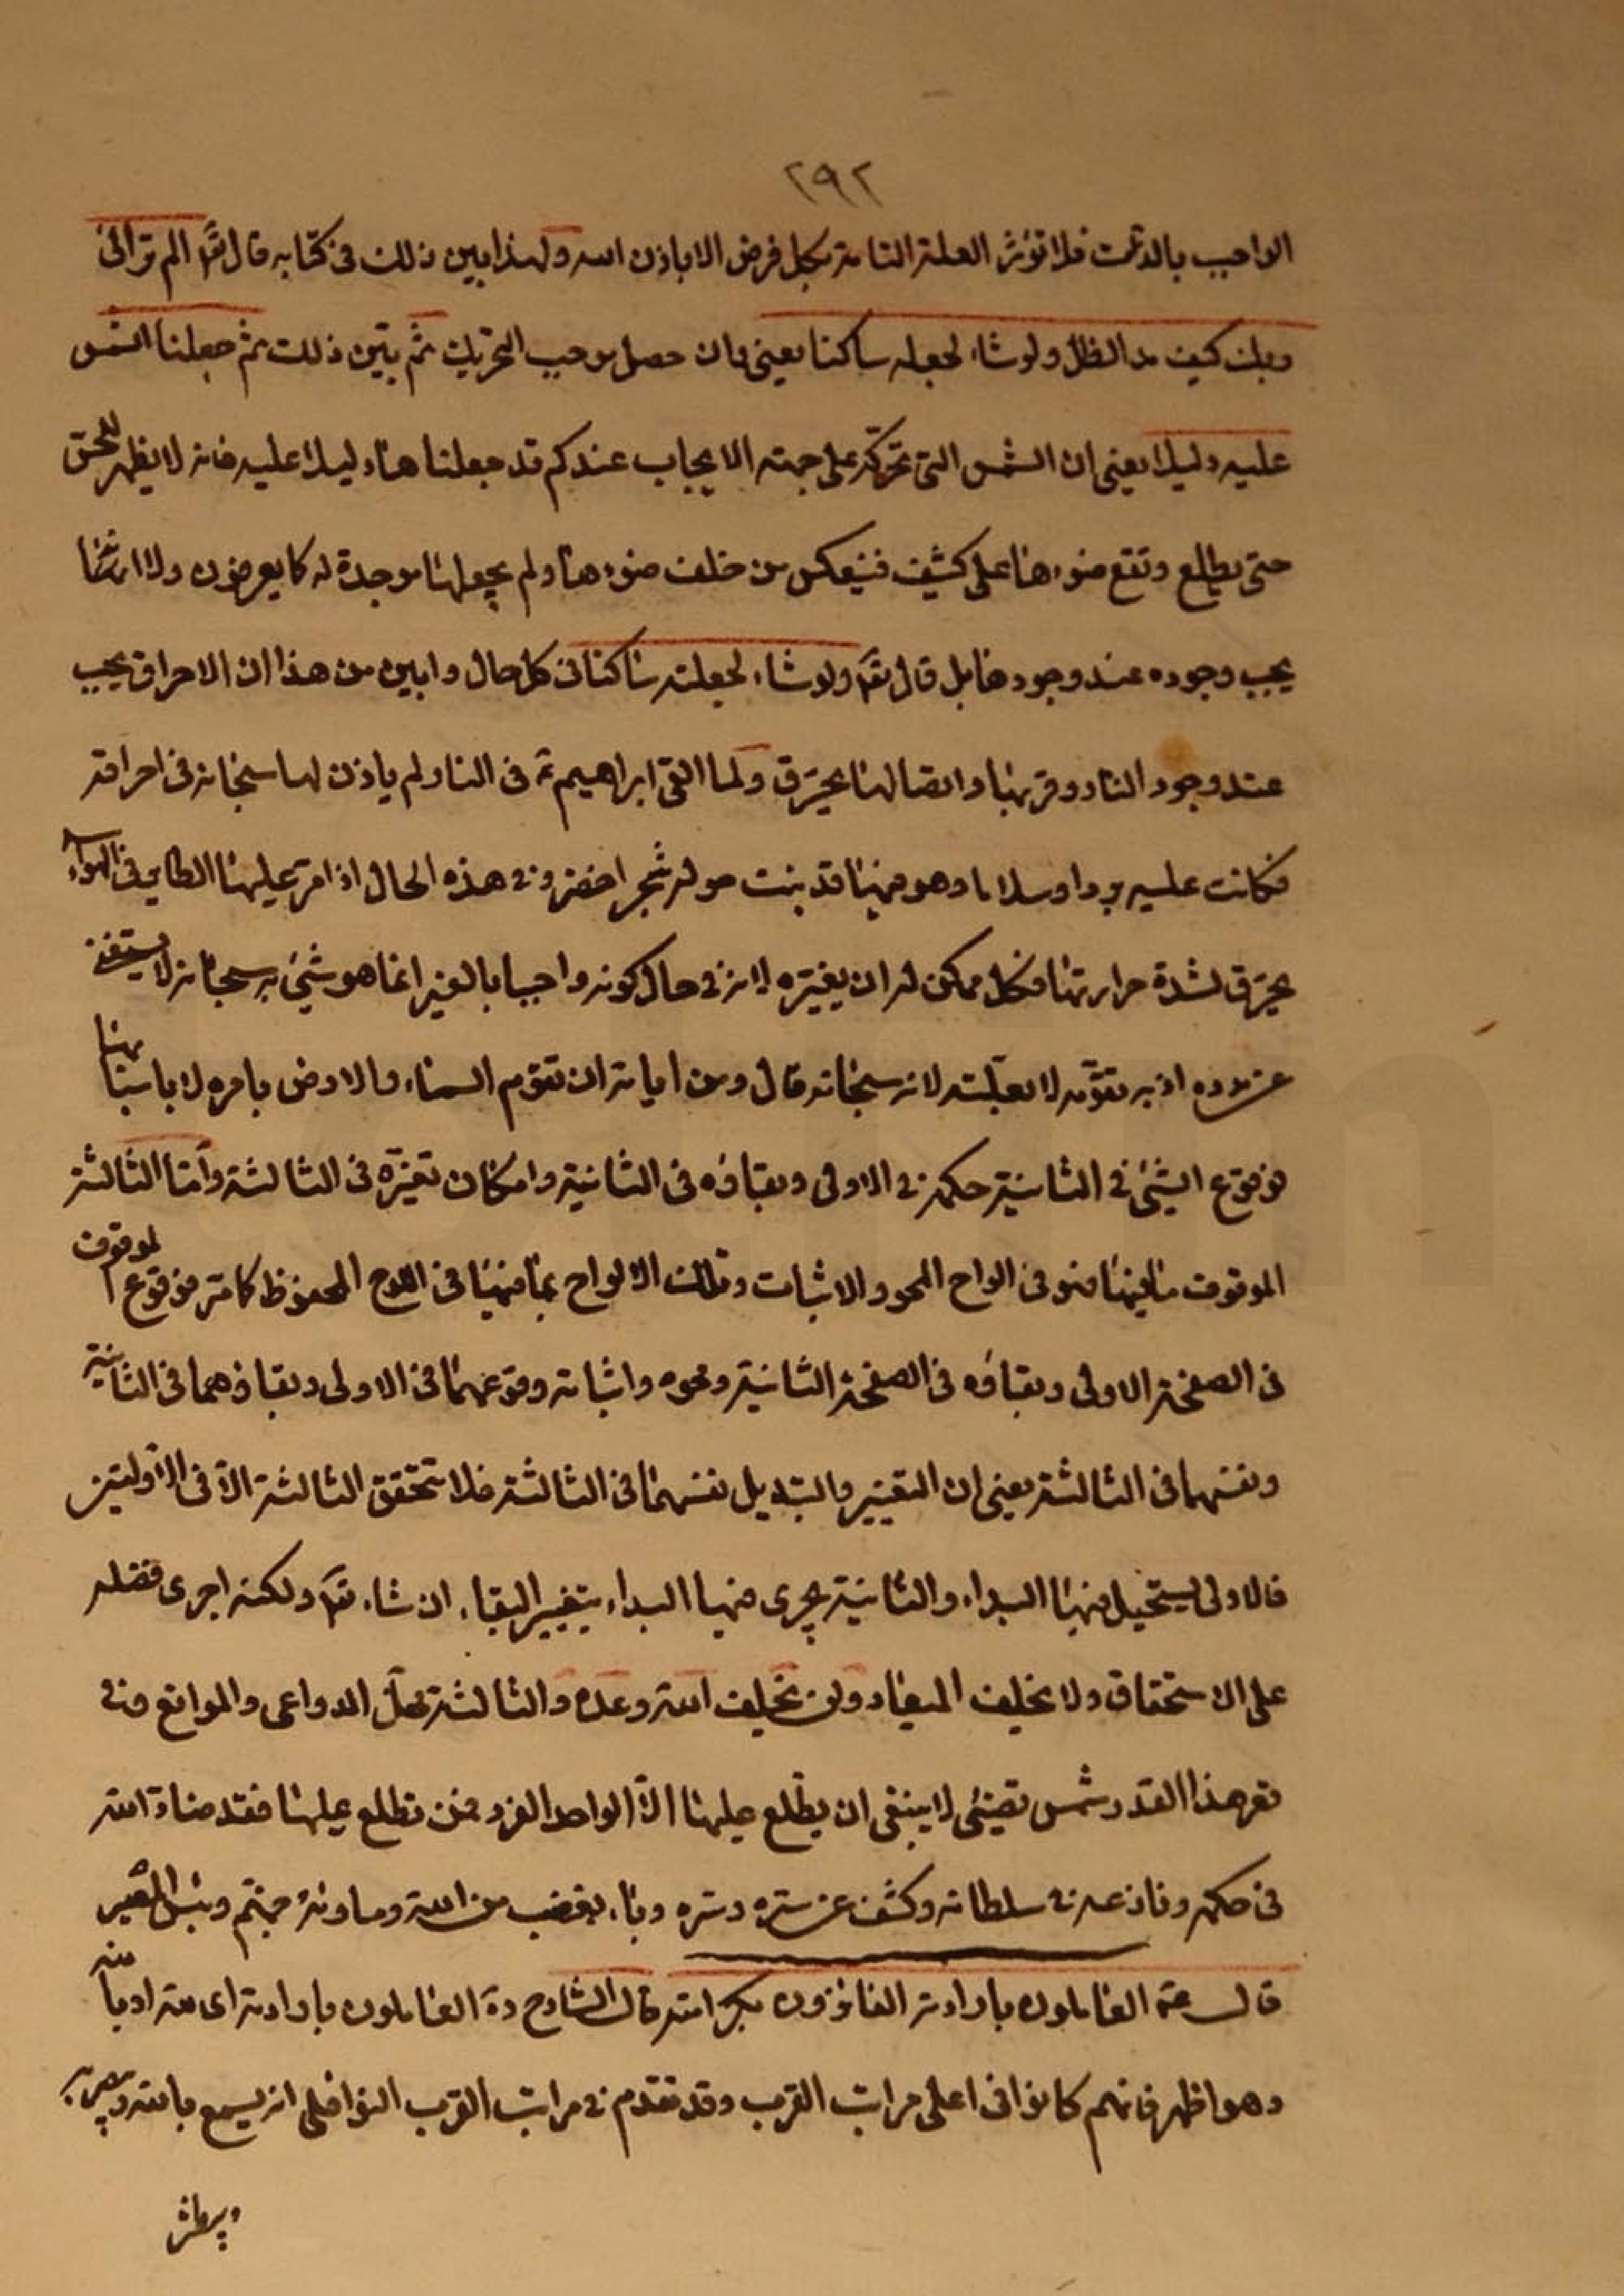 ٢٩٢
الواجب بالذات فلا تؤثر العلة التامة بكل فرض الا باذن الله ولهذا بين ذلك فى كتابه قال تعَ الم تر الى
ربك كيف مد الظل ولو شاء لجعله ساكنا يعنى وان حصل موجب التحريك ثم بيّن ذلك ثم جعلنا الشمس
عليه دليلا يعنى ان الشمس التى تحركه على جهة الايجاب عندكم قد جعلناها دليلا عليه فانه لا يظهر للحسّ
حتى يطلع وتقع ضوءها على كثيف فينعكس من خلف ضوءها ولم يجعلها موجدة له كما يعرفون ولا
يجب وجوده عند وجودها بل قال تعَ ولو شاء لجعله ساكنا فى كل حال وابين من هذا ان الاحراق يجب
عند وجود النار وقربها واتصالها بمحترق ولما القى ابراهيم عَ فى النار ولم ياذن لها سبحانه فى احراقه
فكانت عليه بردا وسلاما وهو فيها قد نبت حوله شجر اخضر وفى هذه الحال اذا مرّ عليها الطاير فى الهواء
يحترق لشدة حرارتها فكل ممكن له ان يغيّره لانه فى حال كونه واجبا بالغير انما هو شئ به سبحانه لا يستغنى
عن مدده اذ به تقوّمه لا بعلّته لانه سبحانه قال ومن اياته ان تقوم السماء والارض بامره لا باسبابها
فوقوع الشئ فى الثانية حكمه فى الاولى وبقاؤه فى الثانية وامكان تغيّره فى الثالثة وامّا الثالثة
الموقوف ما فيها فهو فى الواح المحو والاثبات وتلك الالواح بما فيها فى اللوح المحفوظ كما مر فوقوع الموقوف
فى الصفحة الاولى وبقاؤه فى الصفحة الثانية ومحوه واثباته وقوعهما فى الاولى وبقاؤهما فى الثانية
ونفسهما فى الثالثة يعنى ان التغيير والتبديل نفسهما فى الثالثة فلا تتحقق الثالثة الّا فى الاوليتين
فالاولى يستحيل فيها البداء والثانية يجرى فيها البداء بتغيير البقاء ان شاء تعَ ولكنه اجرى فعله
على الاستحقاق ولا يخلف الميعاد ولن يخلف الله وعده والثالثة محلّ الدواعى والموانع وفى
قعر هذا القدر شمس تضيئ لا ينبغى ان يطّلع عليها الّا الواحد الفرد فمن تطلع عليها فقد ضادّ الله
فى حكمه ونازعه فى سلطانه وكشف عن ستره وسرّه وباء بغضب من الله وماوئه جهنّم وبئس المصير
قال عَم العاملون بارادته الفائزون بكرامته قال الشارح ره العاملون بارادته اى لله او بامنه
وهو اظهر فانهم كانوا فى اعلى مراتب القرب وقد تقدم فى مراتب القرب النوافلى انه يسمع بالله ويبصر به
ويبطش